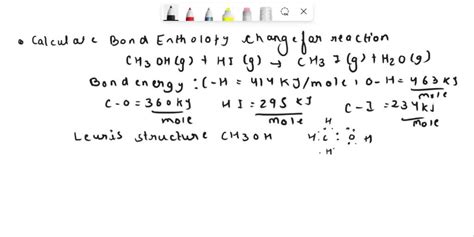 • Calculate Bond Enthalpy change for reaction
CH3OH(g) + HI(g) → CH3I(g) + H2O(g)
Bond energy : C-H = 414 KJ/mole, O-H = 463 KJ/mole
C-O = 360 KJ/mole HI = 295 KJ/mole C-I = 234 KJ/mole
Lewis structure CH3OH H : C : O H
H
H